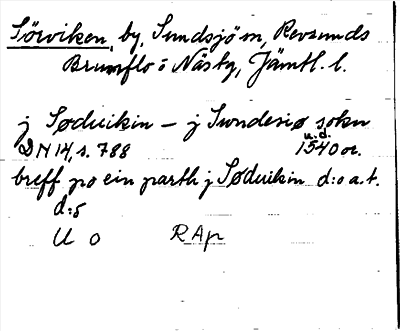 Sörviken, by, Sundsjö sn, Revsunds
Brunflo o Näsks, Jämtl. l.
j Søduikin – j Sundesiø sokn
DN 14, s. 788 u.d. 1540 or.
breff po ein parth j Søduikin d:o a.t.
d:5
U o RAp